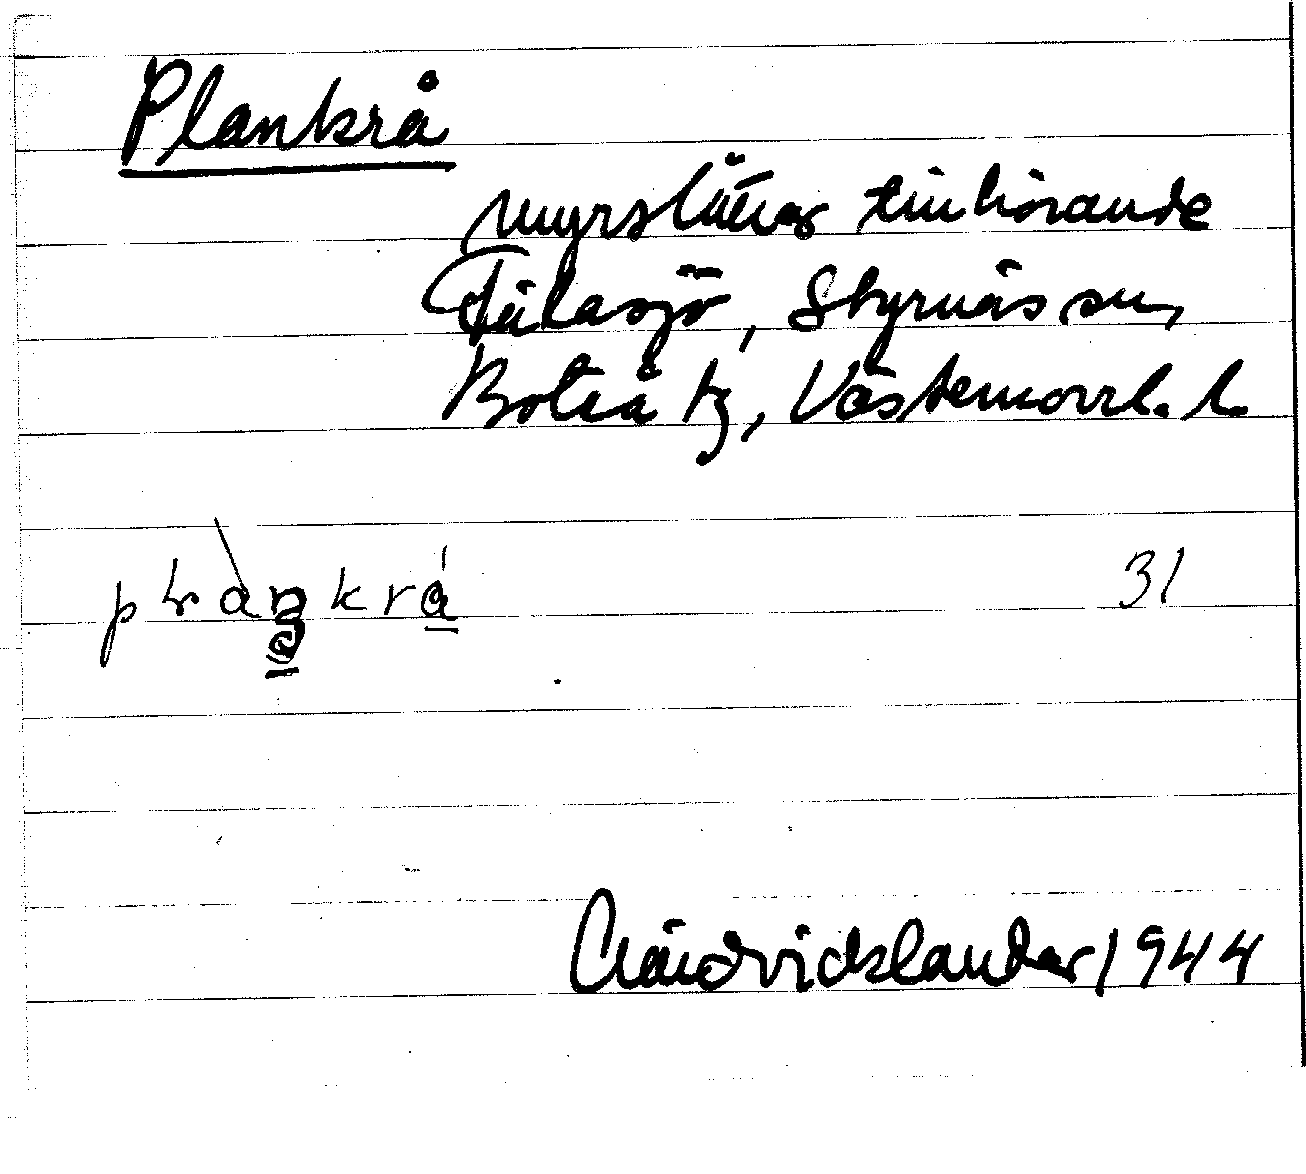 Plankrå
myrslåtter tillhörande
Fälasjö, Styrnäs sn,
Boteå tg, Västernorrl. l.
plàŋkrå 31
Nändvickslander 1944